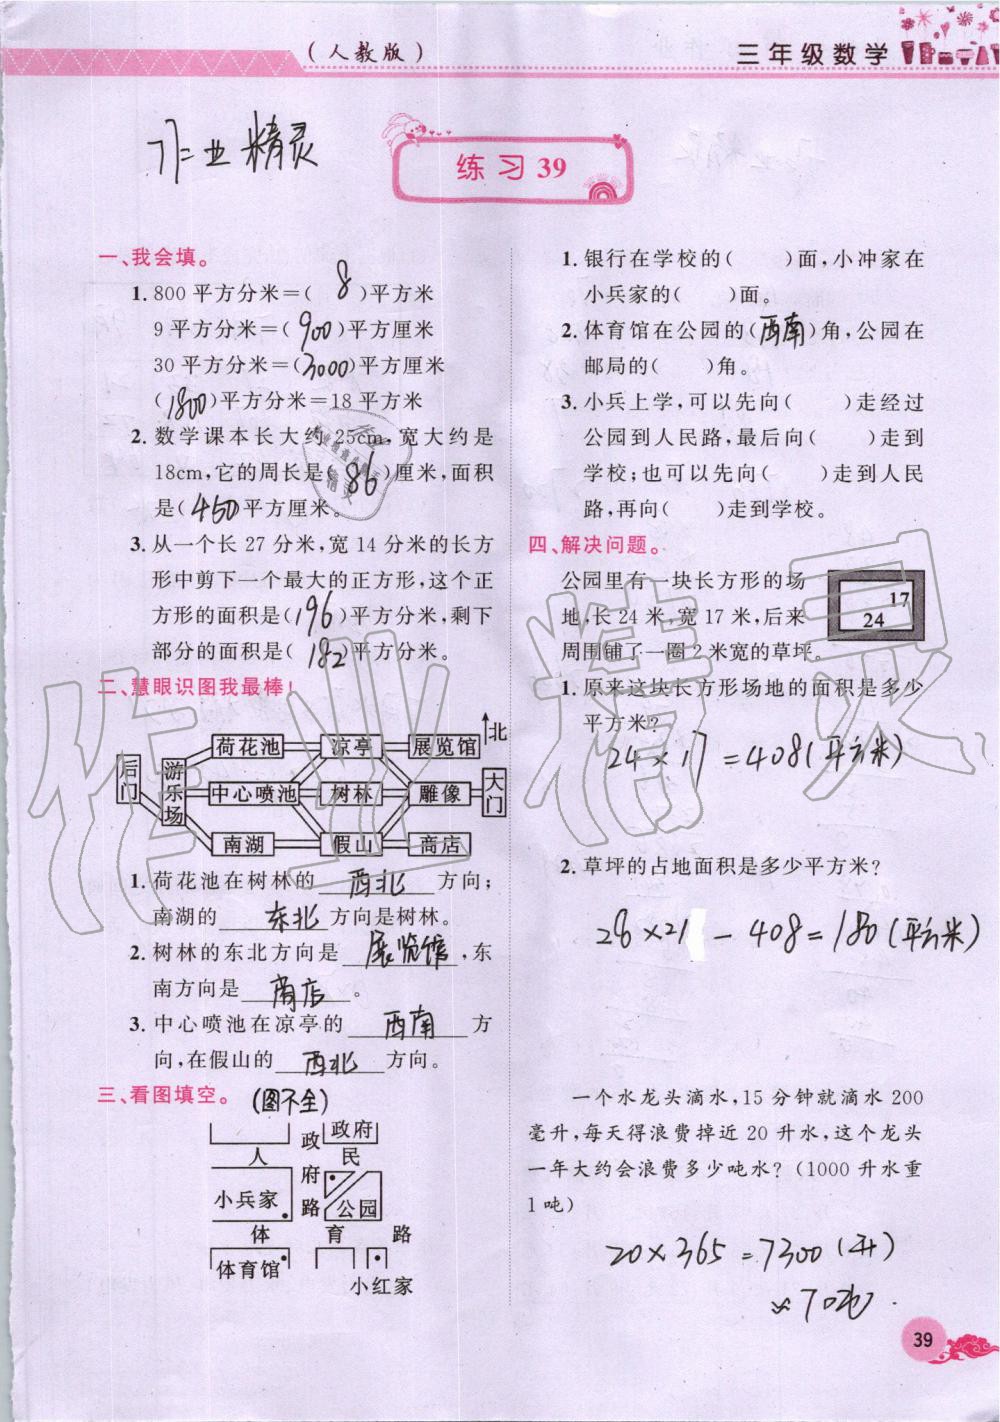 （人教版）
三年级数学
作业精灵
练习 39
一、我会填。
1. 800 平方分米=( 8 )平方米
9 平方分米=( 900 )平方厘米
30 平方分米=( 3000 )平方厘米
( 1800 )平方分米=18 平方米
2. 数学课本长大约 25cm,宽大约是
18cm,它的周长是( 86 )厘米,面积
是( 450 )平方厘米。
3. 从一个长 27 分米,宽 14 分米的长方
形中剪下一个最大的正方形,这个正
方形的面积是( 196 )平方分米,剩下
部分的面积是( 182 )平方分米。
二、慧眼识图我最棒!
北
荷花池 凉亭 展览馆
后门 游乐场 中心喷池 树林 雕像 大门
南湖 假山 商店
1. 荷花池在树林的 西北 方向;
南湖的 东北 方向是树林。
2. 树林的东北方向是 展览馆 ,东
南方向是 商店 。
3. 中心喷池在凉亭的 西南 方
向,在假山的 西北 方向。
三、看图填空。 (图不全)
政 政府
人 民
府
小兵家 路 公园
体 育 路
体育馆
小红家
1. 银行在学校的( )面,小冲家在
小兵家的( )面。
2. 体育馆在公园的( 西南 )角,公园在
邮局的( )角。
3. 小兵上学,可以先向( )走经过
公园到人民路,最后向( )走到
学校;也可以先向( )走到人民
路,再向( )走到学校。
四、解决问题。
公园里有一块长方形的场
地,长 24 米,宽 17 米,后来
周围铺了一圈 2 米宽的草坪。
17
24
1. 原来这块长方形场地的面积是多少
平方米?
24×17=408(平方米)
2. 草坪的占地面积是多少平方米?
28×21-408=180(平方米)
一个水龙头滴水,15 分钟就滴水 200
毫升,每天得浪费掉近 20 升水,这个龙头
一年大约会浪费多少吨水?(1000 升水重
1 吨)
20×365=7300(升)
≈7吨.
39
作业精灵